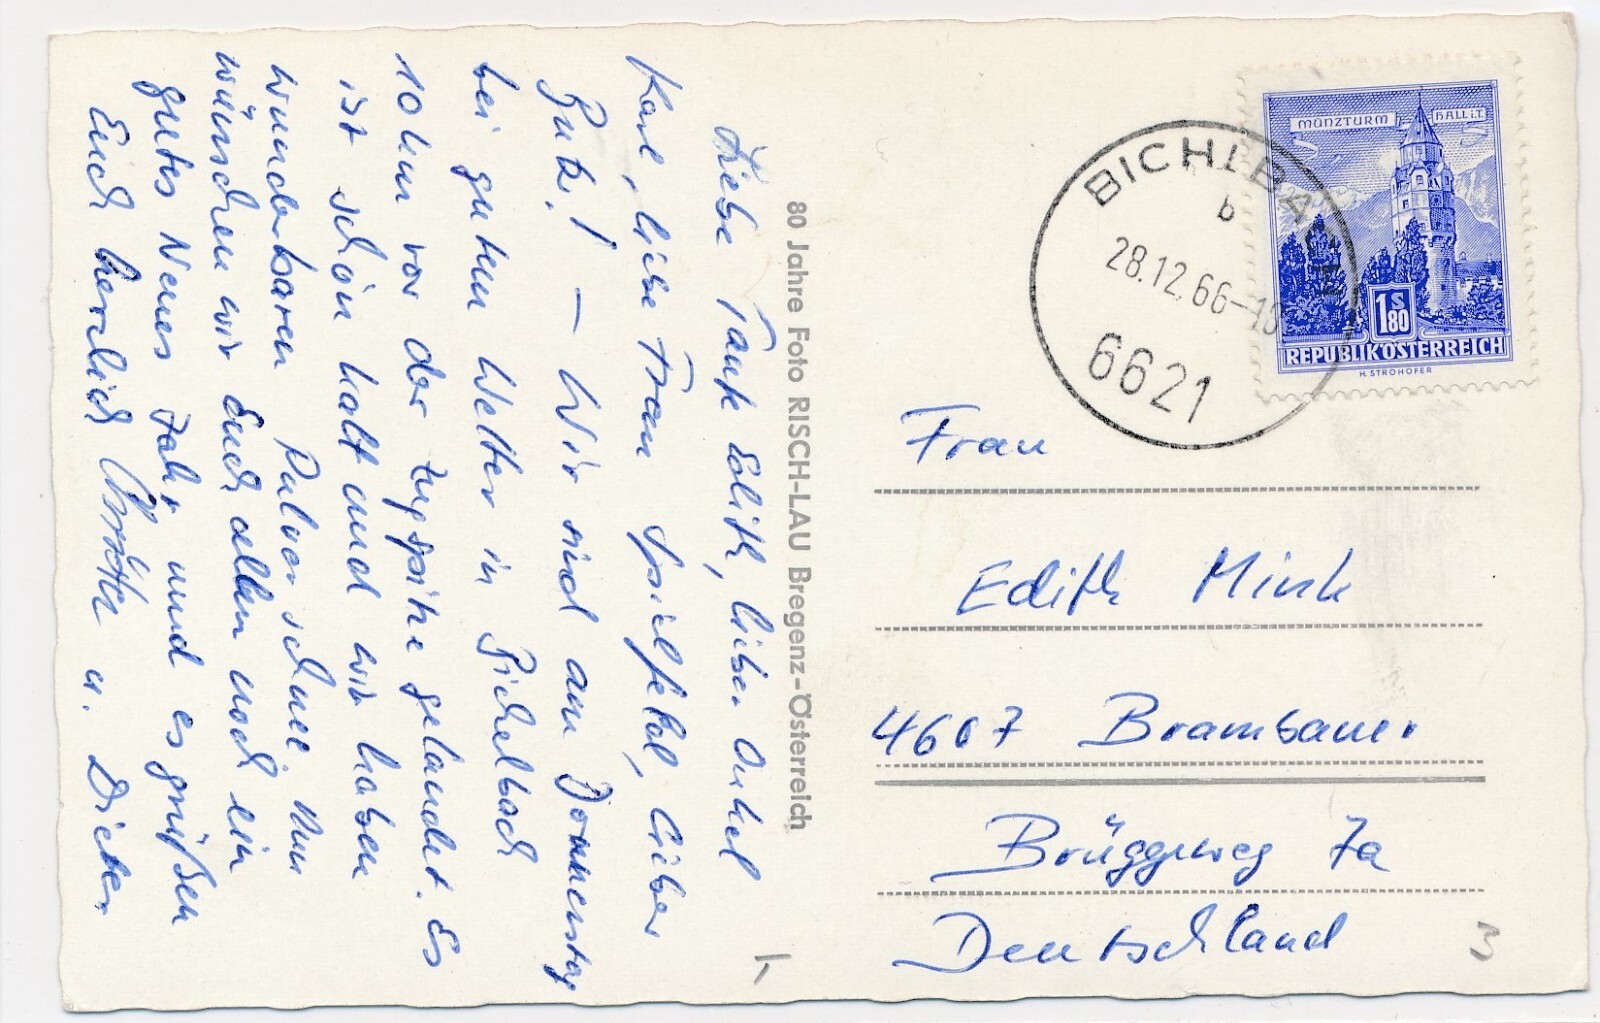 Liebe Tante Edith, lieber Onkel
Karl, liebe Frau Spielfeld, lieber
Butz! – Wir sind am Donnerstag
bei gutem Wetter in Bichelbach
10 km vor der Zugspitze gelandet. Es
ist schön kalt und wir haben
wunderbaren Pulverschnee. Nun
wünschen wir Euch allen noch ein
gutes Neues Jahr und es grüßen
Euch herzlich u. Dieter
80 Jahre Foto RISCH-LAU Bregenz-Österreich
BICHLBACH
b
28.12.66-10
6621
MÜNZTURM HALL i.T.
1 S 80
REPUBLIK ÖSTERREICH
H. STROHOFER
Frau
Edith Mink
4607 Brambauer
Brüggeweg 7a
Deutschland